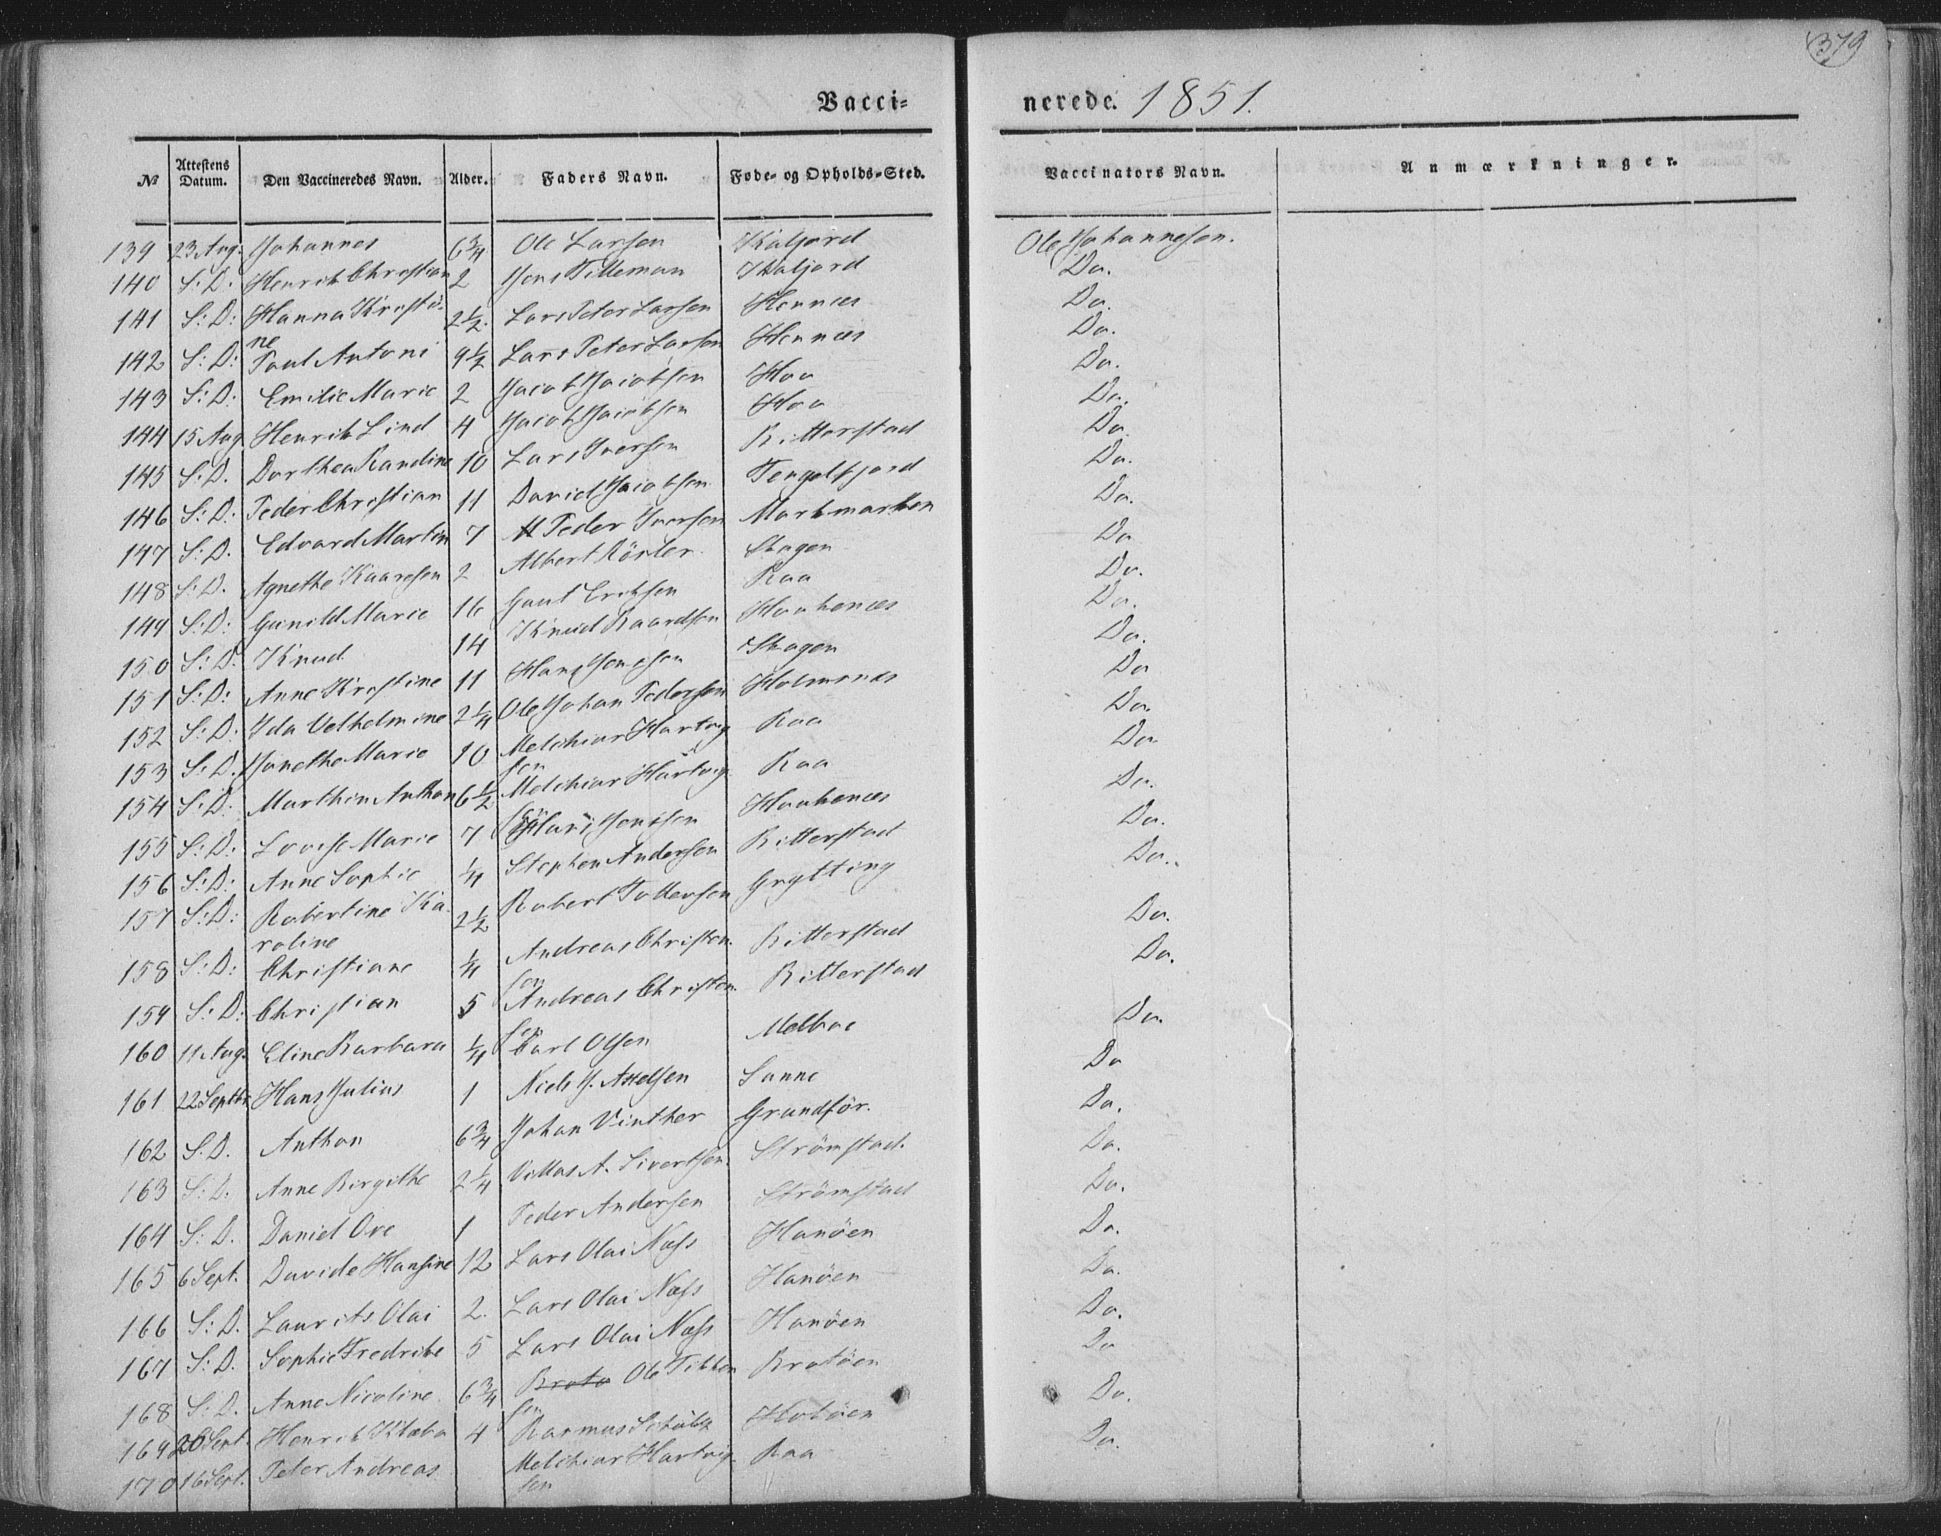 379
Vacci= nerede. 1851.
№ Attestens Datum. Den Vaccineredes Navn. Alder. Faders Navn. Føde- og Opholds-Sted. Vaccinators Navn. Anmærkninger.
139 23 Aug. Johannes 6 3/4 Ole Larsen Kaljord Ole Johannesen.
140 S: D: Henrik Christian 2 Jens Tilleman Kaljord Do.
141 S: D: Hanna Kristi- 2 1/2 Lars Peter Larsen Hennæs Do.
ne
142 S: D: Paul Antoni 9 1/2 Lars Peter Larsen Hennæs Do.
143 S: D: Emilie Marie 2 Jacob Jacobsen Haa Do.
144 15 Aug Henrik Lind 4 Jacob Jacobsen Haa Do.
145 S: D. Dorthea Randine 10 Lars Iversen Ritterstad Do.
146 S: D: Peder Christian 11 David Jacobsen Do.
147 S: D. Edvard Martin 7 Peder Iversen Markmarken Do.
148 S: D. Agnethe Kaaresen 2 Albert Röster Skagen Do.
149 S: D: Gunild Marie 16 Gaut Eriksen Raa Do.
150 S: D: Knud 14 Knud Baardsen Haakenæs Do.
151 S: D: Anne Kristine 11 Hans Jensen Skagen Do.
152 S: D: Ida Velhelmine 2 1/4 Ole Johan Pedersen Holmsnæs Do
153 S: D. Janethe Marie 10 Melchior Hartvig Raa Do.
sen
154 S: D. Marthin Anthon 6 1/2 Melchior Hartvig Raa Do
sen
155 S: D. Lovise Marie 7 Hans Jensen Haakenæs Do.
156 S: D: Anne Sophie 1/4 Stephen Andersen Ritterstad Do.
157 S: D: Robertine Ka- 2 1/2 Robert Tollersen Grytting Do.
roline
158 S: D: Christiane 1/4 Andreas Christen- Ritterstad Do.
sen
159 S: D: Christian 5 Andreas Christen- Ritterstad Do.
sen
160 11 Aug. Eline Barbara 1/4 Carl Olsen Melboe Do.
161 22 Septbr Hans Julius 1 Niels J. Axelsen Sanne Do
162 S. D. Anthon 6 3/4 Johan Vinther Grundför. Do.
163 S: D. Anne Birgithe 2 1/4 A. Sivertsen Strömstad. Do.
164 S: D. Daniel Ove 1 Peder Andersen Strömstad Do.
165 6 Sept. Davide Hansine 12 Lars Olai Næss Hanöen Do.
166 S: D. Laurits Olai 2. Lars Olai Næss Hanöen Do.
167 S: D. Sophie Fredrike 5 Lars Olai Næss Hanöen Do.
168 S: D. Anne Nicoline 6 3/4 Ole Bratöen Do
sen
169 26 Sept. Henrik Klæbo 4 Rasmus Schultz Do.
170 16 Sept. Peter Andreas Melchior Hartvig- Raa Do.
sen